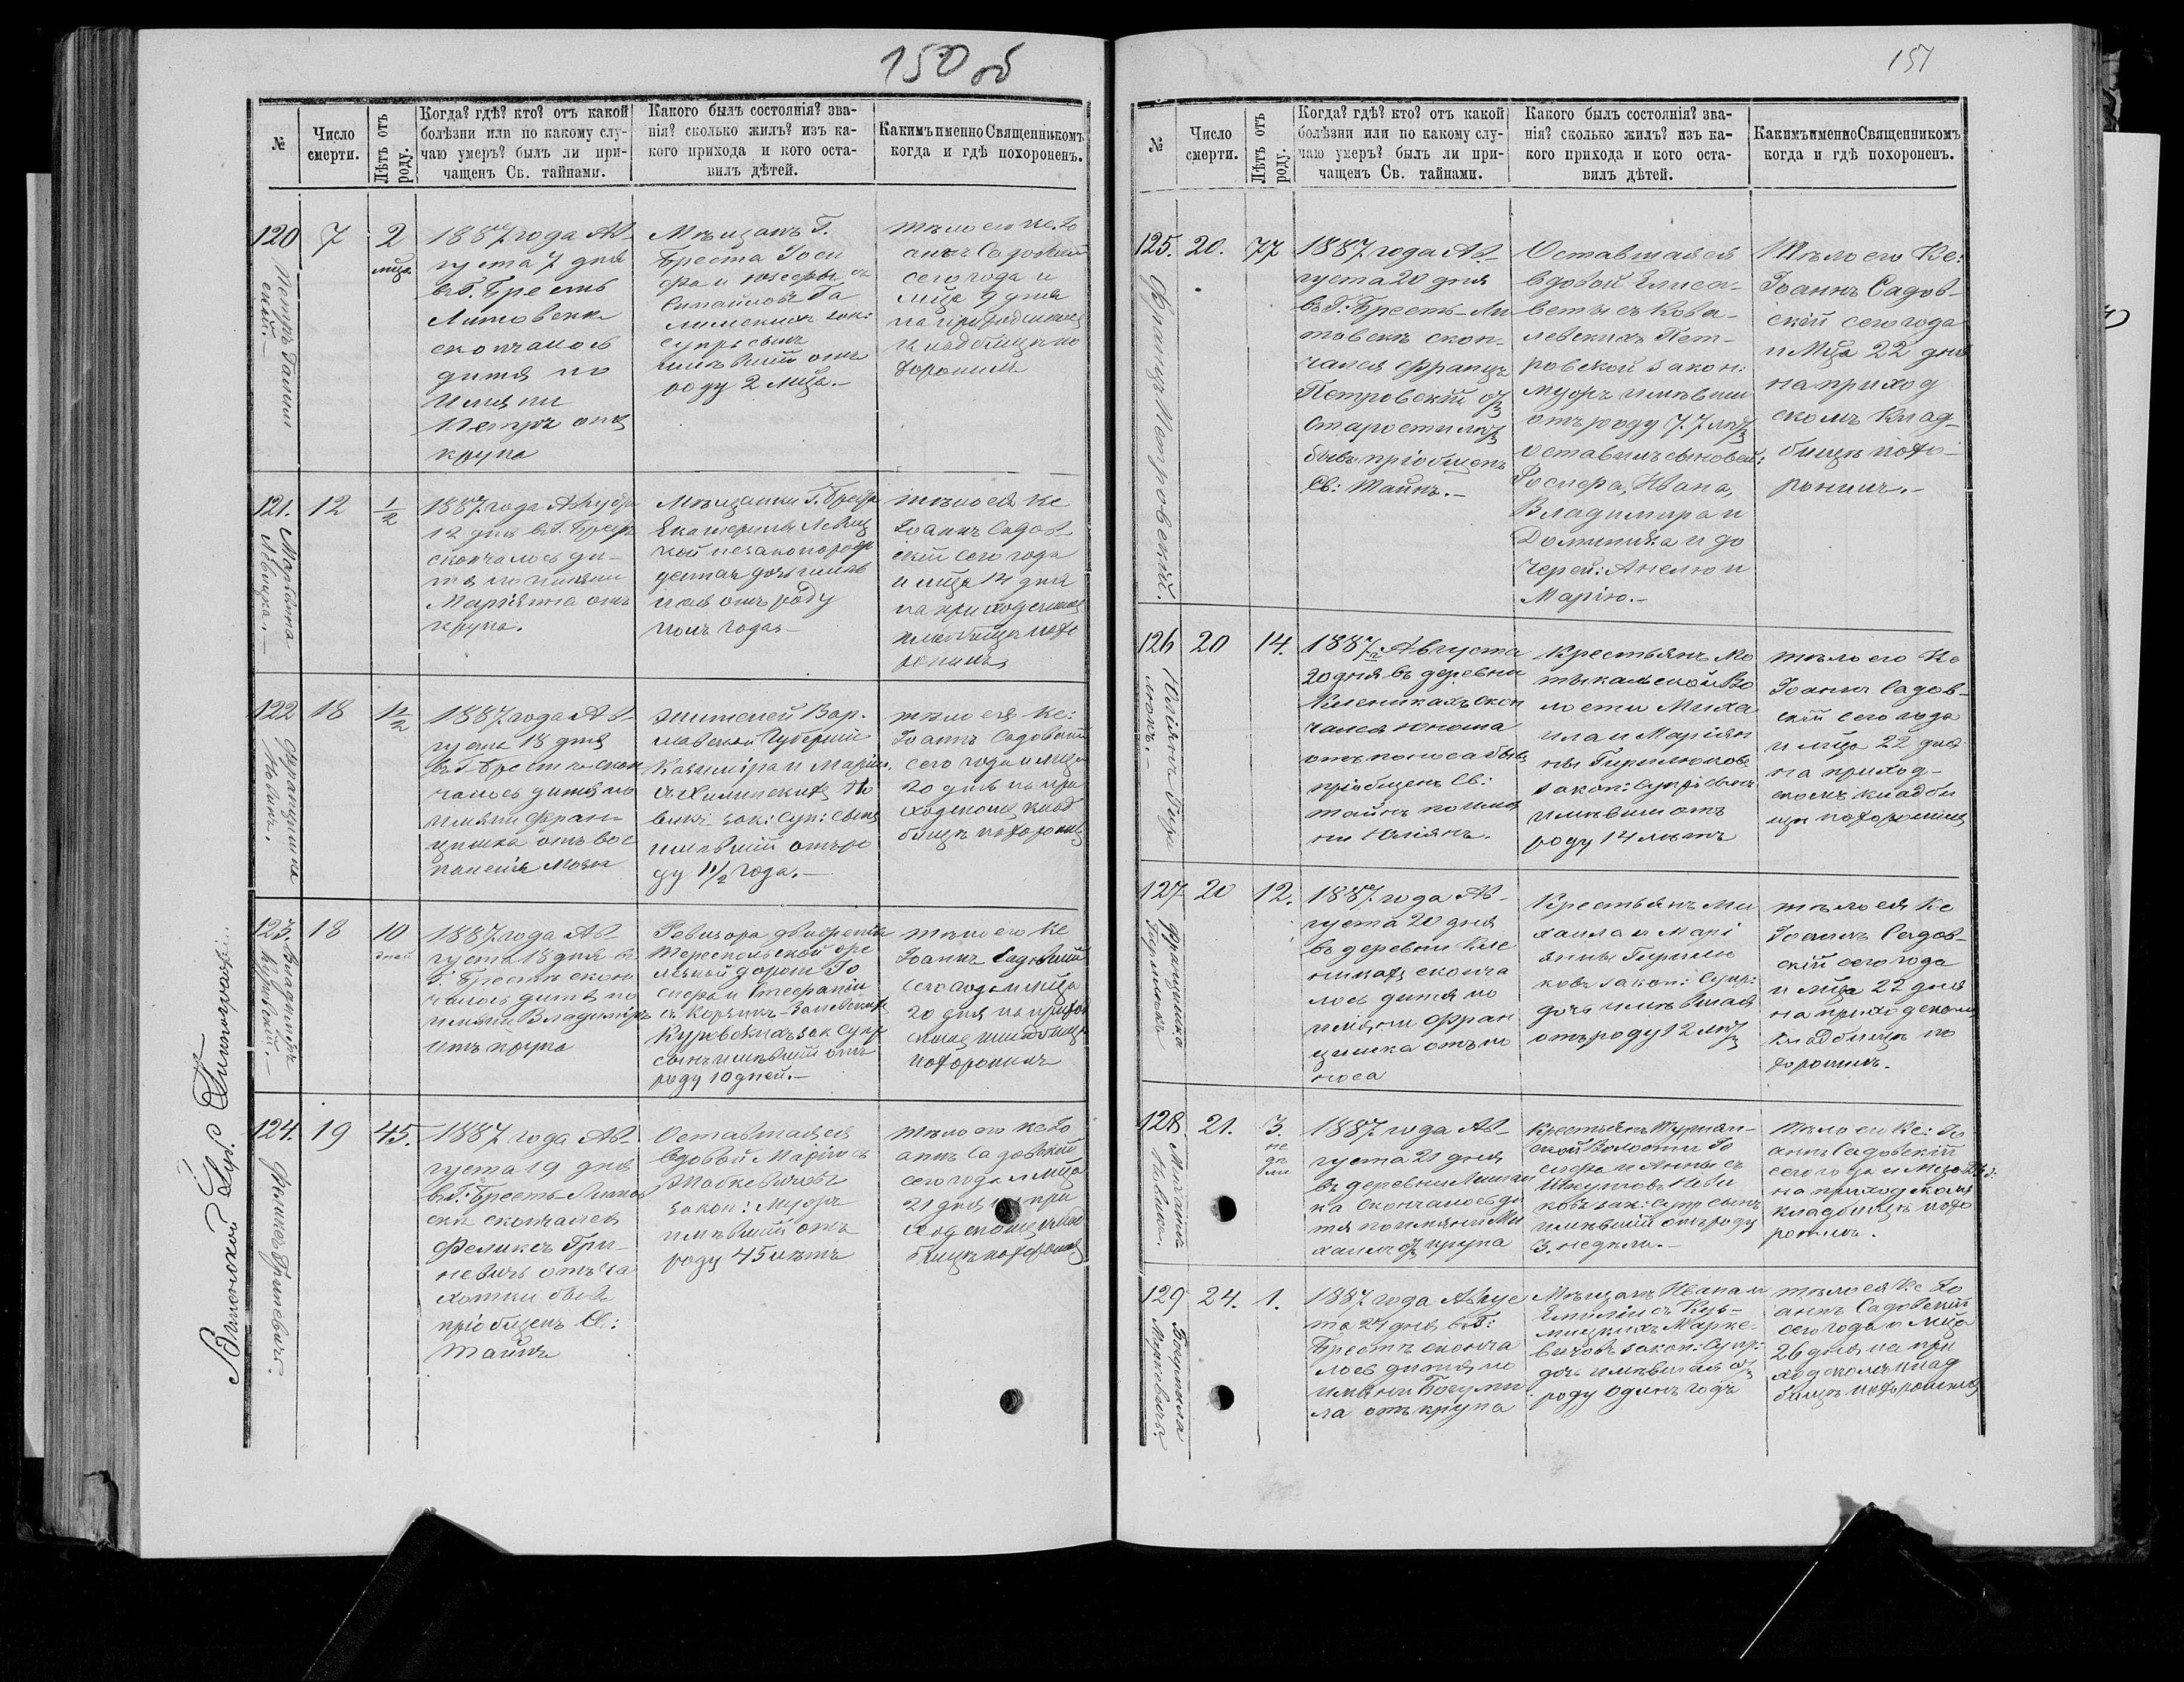 150 об
№
Число смерти.
Лѣтъ отъ роду.
Когда? гдѣ? кто? отъ какой
болѣзни или по какому слу-
чаю умеръ? былъ ли при-
чащенъ Св. тайнами.
Какого былъ состоянія? зва-
нія? сколько жилъ? изъ ка-
кого прихода и кого оста-
вилъ дѣтей.
Какимъ именно Священникомъ
когда и гдѣ похороненъ.
120
7
2
мца
1887 года Ав-
густа 7 дня
въ г. Брестъ
Литовскѣ
скончалось
дитя по
имени
Петръ отъ
крупа
Мѣщанъ Г.
Бреста Іоси
фа и
зак:
супр: сынъ
имѣвшій отъ
роду 2 мца.-
тѣло его Кс. Іо
аннъ Садовскій
сего года и
мца 9 дня
на приходскомъ
кладбищѣ по
хоронилъ
121.
12
1/2
Маріянна
Левицка.-
1887 года Августа
12 дня въ г. Брестѣ
скончалось ди-
тя по имени
Маріянна отъ
крупа.
Мѣщанки Г. Бреста
Екатерины Левиц
кой незаконорож
денная дочь имѣв
шая отъ роду
полъ года.-
тѣло ея Кс
Іоаннъ Садов-
скій сего года
и мца 14 дня
на приходскомъ
кладбищѣ похо
ронилъ
122
18
1 1/2
Францишка
Новикъ.
1887 года Ав-
густа 18 дня
въ г. Брестѣ скон
чалось дитя по
имени Фран-
цишка отъ вос
паленія мозга
жителей Вар-
шавской Губерніи
Казиміра и Маріи
Но
викъ зак: суп:
имѣвшій отъ ро
ду 1 1/2 года.-
тѣло ея Кс:
Іоаннъ Садовскій
сего года и мца
20 дня на при
ходскомъ клад
бищѣ похоронилъ
123.
18
10
дней
Владиміръ
Куровскій.-
1887 года Ав-
густа 18 дня въ
г. Брестѣ скон
чалось дитя по
имени Владиміръ
отъ крупа
Ревизора движенія
Тереспольской же
лѣзной дороги Іо
сифа и Стефаніи
Куровскихъ зак супр
сынъ имѣвшій отъ
роду 10 дней.-
тѣло его Кс
Іоаннъ Садовскій
сего года и мца
20 дня на приход
скомъ кладбищѣ
похоронилъ
124.
19
45.
Феликсъ Гриневичъ.
1887 года Ав-
густа 19 дня
въ г. Брестъ Литов
скѣ скончался
Феликсъ Гри-
невичъ отъ ча
хотки бывъ
пріобщенъ Св:
Тайнъ
Оставшаяся
вдовой Марія съ
закон: мужъ
имѣвшій отъ
роду 45 лѣтъ
тѣло его Кс Іо
аннъ Садовскій
сего года и мца
21 дня на при
ходскомъ клад
бищѣ похоронилъ
151
№
Число смерти.
Лѣтъ отъ роду.
Когда? гдѣ? кто? отъ какой
болѣзни или по какому слу-
чаю умеръ? былъ ли при-
чащенъ Св. тайнами.
Какого былъ состоянія? зва-
нія? сколько жилъ? изъ ка-
кого прихода и кого оста-
вилъ дѣтей.
Какимъ именно Священникомъ
когда и гдѣ похороненъ.
125.
20.
77
Францъ Петровскій.
1887 года Ав-
густа 20 дня
въ г: Брестъ-Ли
товскѣ скон-
чался Францъ
Петровскій отъ
старости лѣтъ
бывъ пріобщенъ
Св: Тайнъ.-
Оставшаяся
вдовой Елиса-
веты съ Кова-
левскихъ Пет-
ровской закон:
мужъ имѣвши
отъ роду 77 лѣтъ
оставилъ сыновей:
Іосифа, Ивана,
Владиміра и
Доминика и до
черей: Анелю и
Марію.-
Тѣло его Кс:
Іоаннъ Садов-
скій сего года
и Мца 22 дня
на приход
скомъ Клад-
бищѣ похо-
ронилъ.-
126
20
14.
1887 г Августа
20 дня въ деревни
скон
чался юноша
отъ поноса бывъ
пріобщенъ Св:
тайнъ по име
ни Юліянъ.
Крестьянъ Мо
тыкальской Во
лости Миха
ила и Маріян
ны Гирилюковъ
закон: супр: сынъ
имѣвши отъ
роду 14 лѣтъ
тѣло его Кс
Іоаннъ Садов-
скій сего года
и мца 22 дня
на приход-
скомъ кладби
щѣ похоронилъ
127
20
12.
Францишка
1887 года Ав-
густа 20 дня
въ деревни
сконча
лось дитя по
имени Фран
цишка отъ по
носа
Крестьянъ Ми
хаила и Марі
янны Гирилю
ковъ закон: супр:
дочь имѣвшая
отъ роду 12 лѣтъ
тѣло ея Кс
Іоаннъ Садов-
скій сего года
и мца 22 дня
на приходскомъ
кладбищѣ по
хоронилъ.
128
21.
3.
не
дѣ
ли
Михаилъ
1887 года Ав-
густа 21 дня
въ деревни
скончалось ди
тя по имени Ми
хаилъ отъ крупа
Крестьянъ
Волости Іо
сифа и Анны съ
зак: супр сынъ
имѣвшій отъ роду
3. недѣли.-
тѣло его Кс: Іо
аннъ Садовскій
сего года и Мца
на приходскомъ
кладбищѣ похо
ронилъ.
129
24.
1.
Богумила
1887 года Авгус
та 24 дня въ г:
Брестѣ сконча
лось дитя по
имени Богуми
ла отъ крупа
Мѣщанъ Ивана и
Емиліи съ
закон: супр:
дочь имѣвшая отъ
роду одинъ годъ
тѣло ея Кс Іо
аннъ Садовскій
сего года и мца
26 дня на при
ходскомъ клад
бищѣ похоронилъ